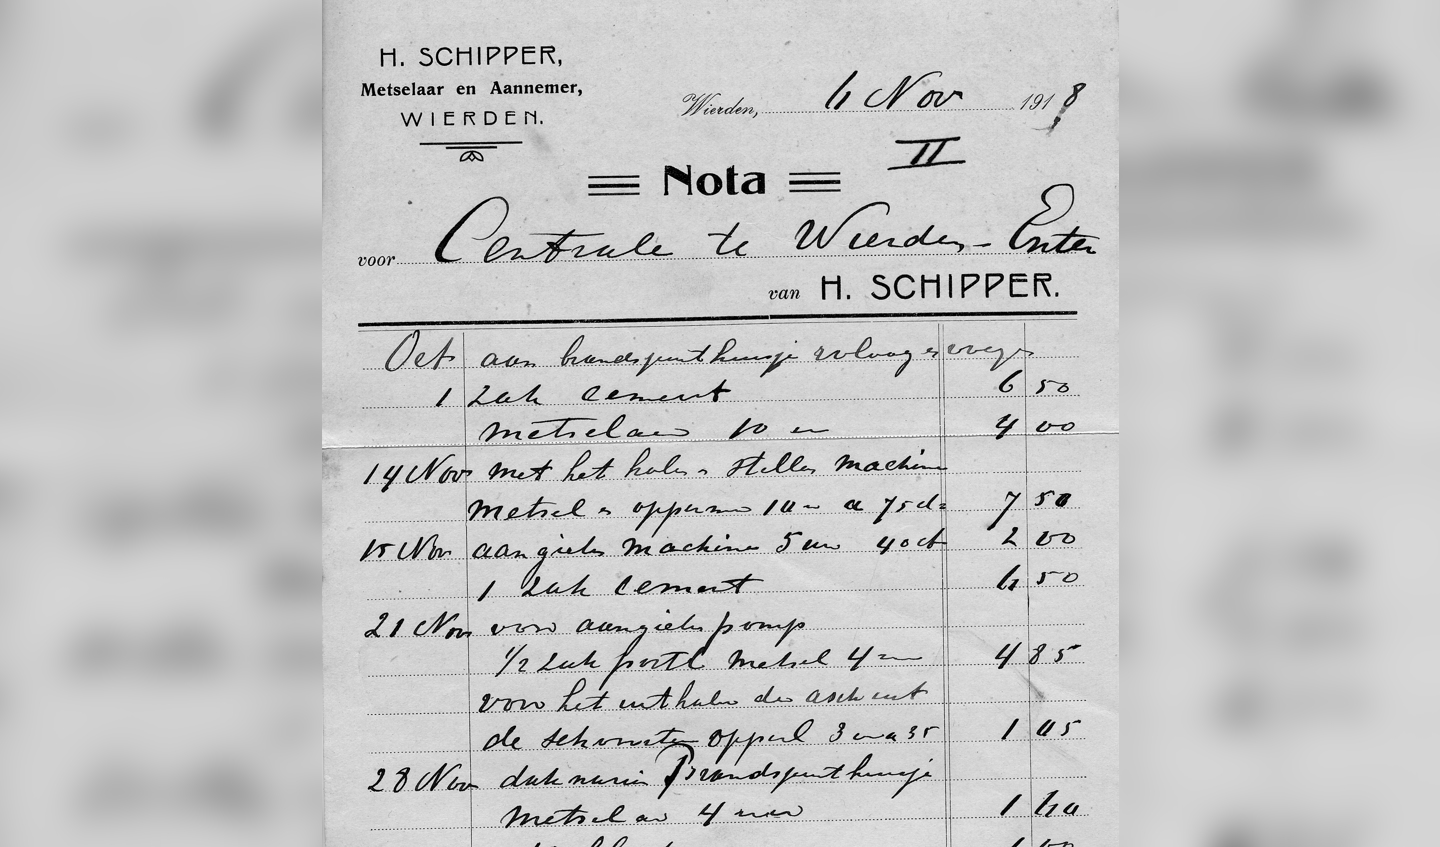 H. SCHIPPER,
Metselaar en Aannemer,
WIERDEN.
Wierden, 6 Nov 1918
II
Nota
voor Centrale te Wierden - Enter
van H. SCHIPPER.
Oct aan brandspuithuisje
1 zak cement 6 50
metselaar 10 4 00
14 Nov met het halen stellen machine
metsel 10 a 75 7 50
15 Nov aangieten machine 5 uur 40 ct 2 00
1 zak cement 6 50
21 Nov voor aangieten pomp
1/2 zak portl metsel 4 4 85
voor het uithalen de asch uit
de schoorsten opperl 3 a 35 1 05
28 Nov dak Brandspuithuisje
metselaar 4 uur 1 60